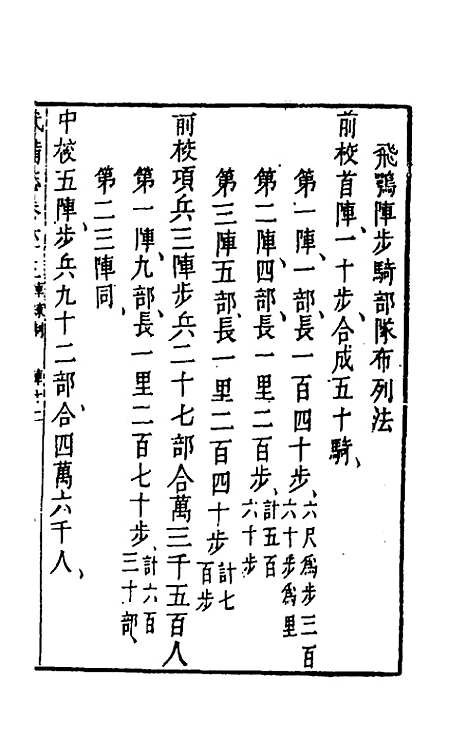 飛鶚陣步騎部隊布列法
前校首陣一十步合成五十騎
第一陣一部長一百四十步六尺爲步三百六十步爲里
第二陣四部長一里二百步計五百六十步
第三陣五部長一里二百四十步計七百步
前校項兵三陣步兵二十七部合萬三千五百人
第一陣九部長一里二百七十步計六百三十部
第二三陣同
中校五陣步兵九十二部合四萬六千人
武備志卷